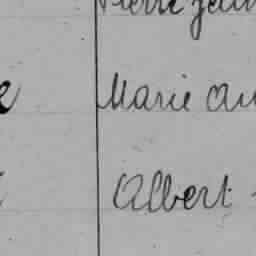 Pierre Jean
Marie An
Albert